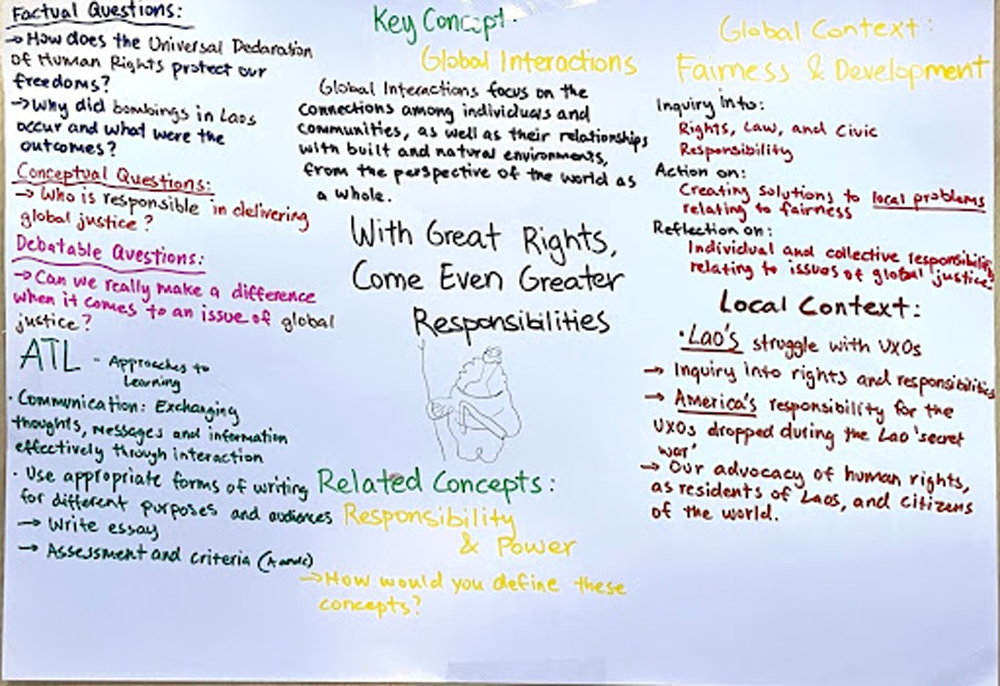 Factual Questions:
→ How does the Universal Declaration
of Human Rights protect our
freedoms?
→ Why did bombings in Laos
occur and what were the
outcomes?
Conceptual Questions:
→ Who is responsible in delivering
global justice?
Debatable Questions:
→ Can we really make a difference
when it comes to an issue of global
justice?
ATL - Approaches to
Learning
• Communication: Exchanging
thoughts, messages and information
effectively through interaction
• Use appropriate forms of writing
for different purposes and audiences
→ Write essay
→ Assessment and criteria
Key Concept:
Global Interactions
Global Interactions focus on the
connections among individuals and
communities, as well as their relationships
with built and natural environments,
from the perspective of the world as
a whole.
With Great Rights,
Come Even Greater
Responsibilities
Related Concepts:
Responsibility
& Power
→ How would you define these
concepts?
Global Context:
Fairness & Development
Inquiry into:
Rights, Law, and Civic
Responsibility
Action on:
Creating solutions to local problems
relating to fairness
Reflection on:
Individual and collective responsibility
relating to issues of global justice.
Local Context:
• Lao's struggle with UXOs
→ Inquiry into rights and responsibilities
→ America's responsibility for the
UXOs dropped during the Lao 'secret
war'
→ Our advocacy of human rights,
as residents of Laos, and citizens
of the world.